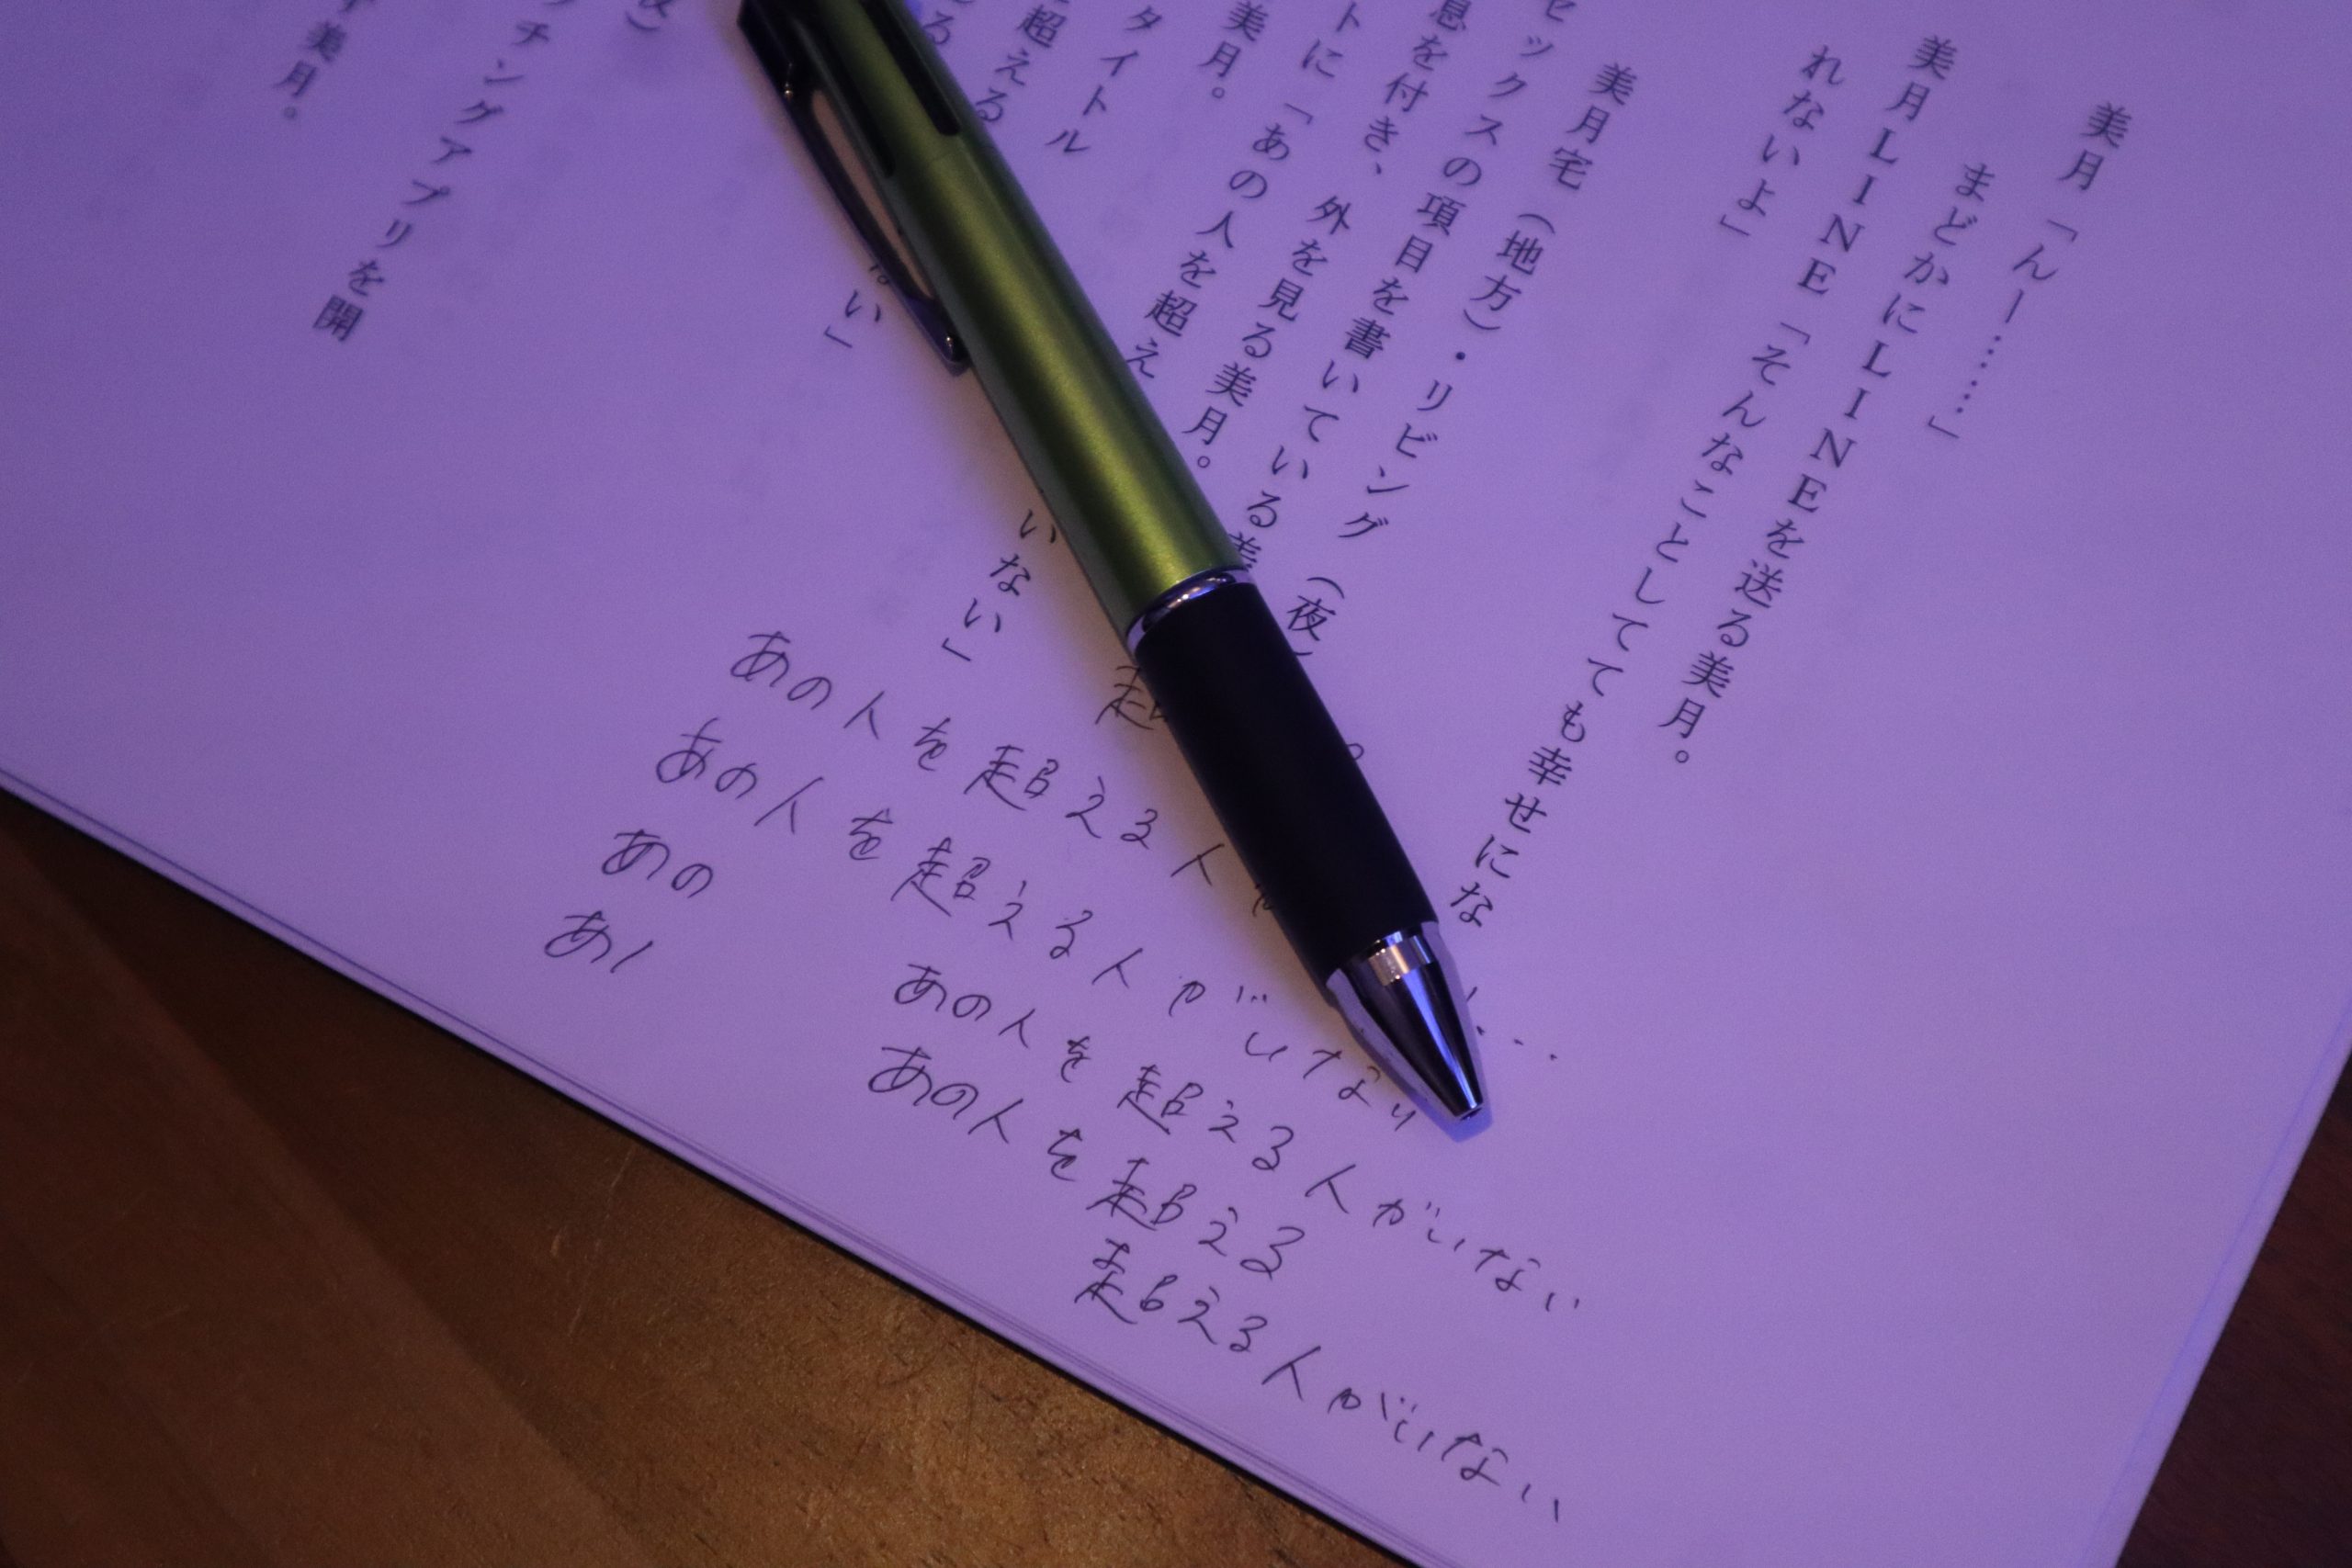 美月「んー……」
まどかにLINEを送る美月。
美月LINE「そんなことしてても幸せにな
れないよ」
美月宅（地方）・リビング（夜）
セックスの項目を書いている美
息を付き、外を見る美月。
トに「あの人を超え
美月。
タイトル
超える
いない」
る
ない」
ッチングアプリを開
美月。
あの人を超える人
あの人を超える人がいない
あの
あ
あの人を超える人がいない
あの人を超える
超える人がいない